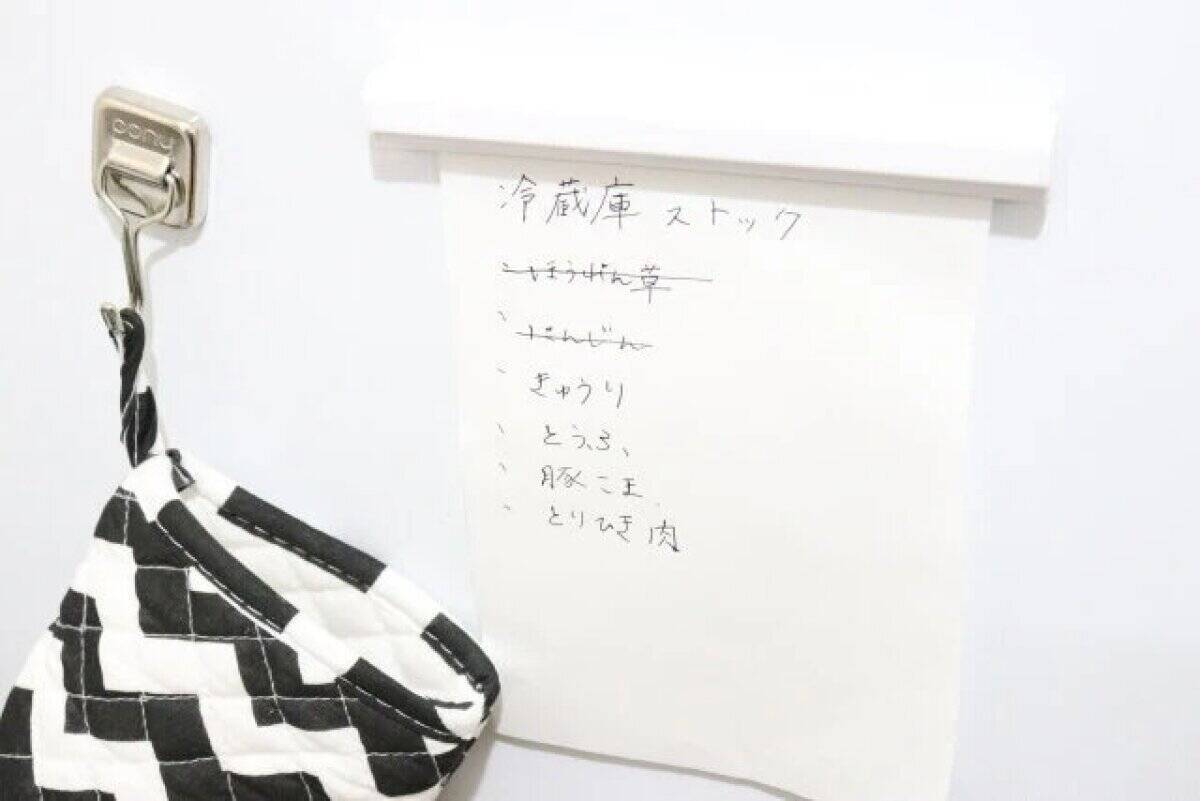 冷蔵庫 ストック
、ほうれん草
、にんじん
、きゅうり
、とうふ
、豚こま
、とりひき肉